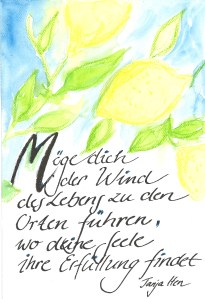 Möge dich
der Wind
des Lebens zu den
Orten führen,
wo deine Seele
ihre Erfüllung findet
Tanja Hen